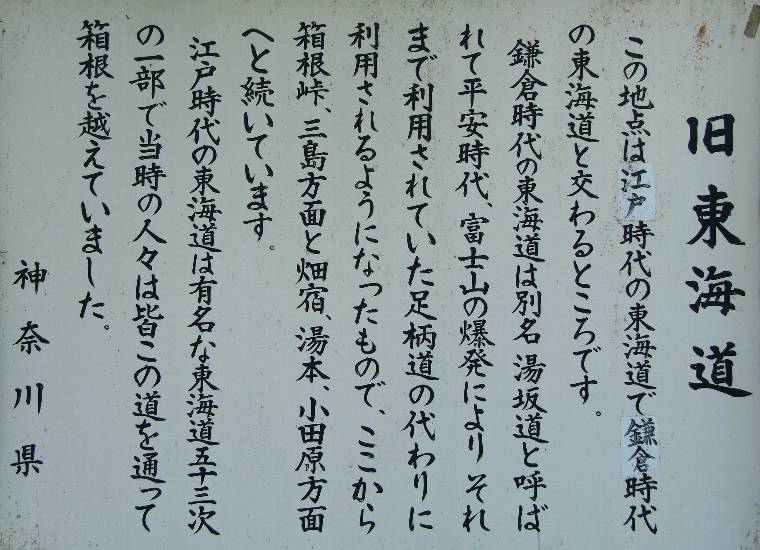 旧東海道
この地点は江戸時代の東海道で鎌倉時代
の東海道と交わるところです。
鎌倉時代の東海道は別名湯坂道と呼ば
れて平安時代、富士山の爆発によりそれ
まで利用されていた足柄道の代わりに
利用されるようになったもので、ここから
箱根峠、三島方面と畑宿、湯本、小田原方面
へと続いています。
江戸時代の東海道は有名な東海道五十三次
の一部で当時の人々は皆この道を通って
箱根を越えていました。
神奈川県